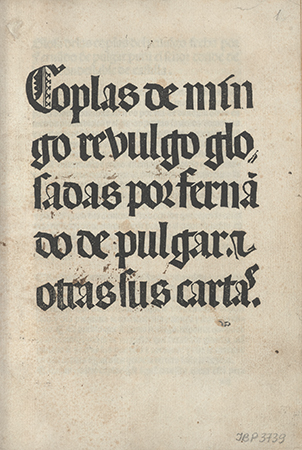 1
Coplas de min
go revulgo glo⸗
sadas por fernã
do de pulgar. ⁊
otras sus cartas.
IBP3739